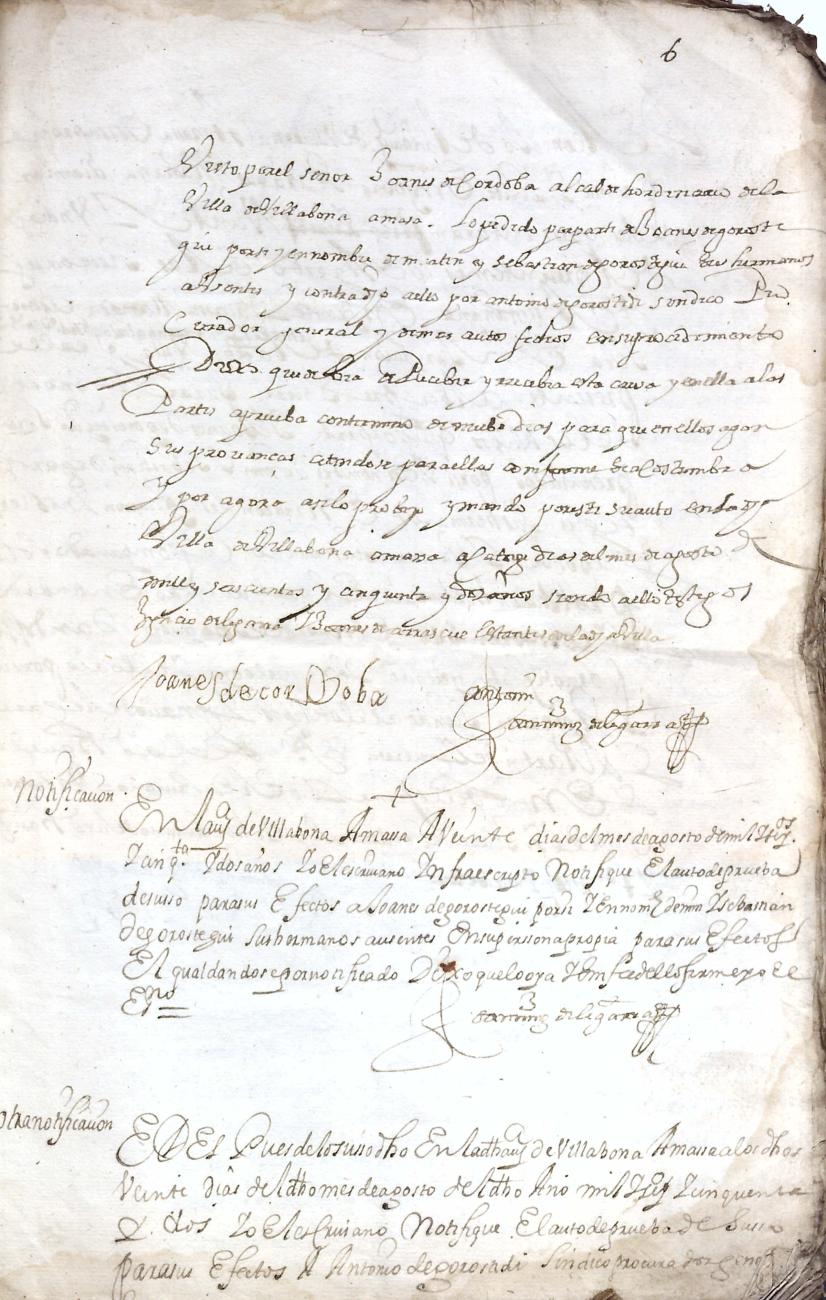 6
Visto por el senor Joanes de Cordoba alcalde hordinario de la
Villa de Villabona amasa. Lo pedido por parte de Joanes de goroste
gui por si y en nombre de martin y Sebastian de gorostegui sus hermanos
absentes y contradho a ello por antonio de gorostidi sindico Pro
Curador jeneral y demas autos fechos en su procedimiento
Dixo que debia de Recebir y recibia esta causa y en ella a las
Partes aprueba con termino de nuebe dias para que en ellos agan
Sus provanças citandose para ellas comforme de a Costumbre
Y por agora asi lo probeyo y mando por este su auto en la dha
Villa de Villabona amasa a Catorze dias del mes de agosto de
mill y seiscientos y cinquenta y dos años siendo a ello testigos
Ygnacio de Joanes de arrascue Estantes en la dha Villa
Joanes de cordoba
ante mi
Notificacion
En la Va de Villabona Amassa A Veinte dias del mes de agosto de mil y seys
Y cinqta Y dos años Yo El escrivano Ynfraescripto Notifique El auto de prueba
de suso para sus Efectos a Joanes de gorostegui por si Y En nome de mn Y sebastian
de gorostegui sus hermanos ausentes En su persona propia para sus Efectos
El qual dandose por notificado Dixo que lo oya Y En fee dello firme yo El
Esno
otra notificacion
E DEsPues de lo susodho En la dha Va de Villabona Amassa a los dhos
Veinte dias del dho mes de agosto del dho Año mil Y seys Y cinquenta
Y dos Yo El escrivano Notifique El auto de prueba de suso
para sus Efectos A Antonio de gorostidi Sindico procurador gen